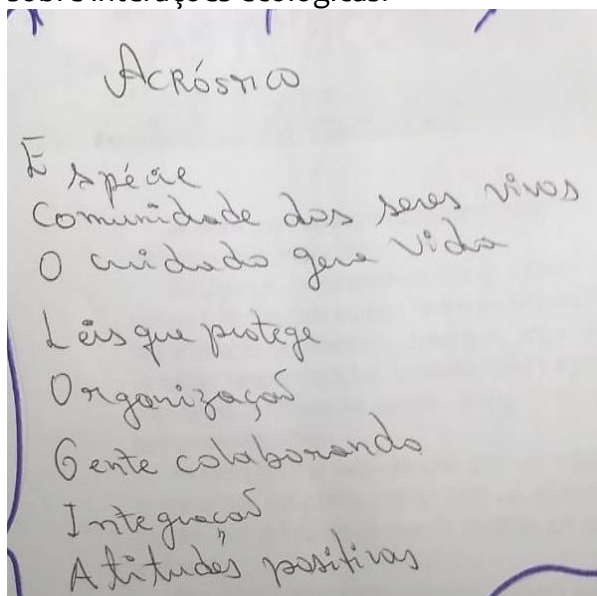 sobre interações ecológicas.
ACRÓSTICO
Espécie
Comunidade dos seres vivos
O cuidado gera vida
Leis que protege
Organização
Gente colaborando
Integração
Atitudes positivas